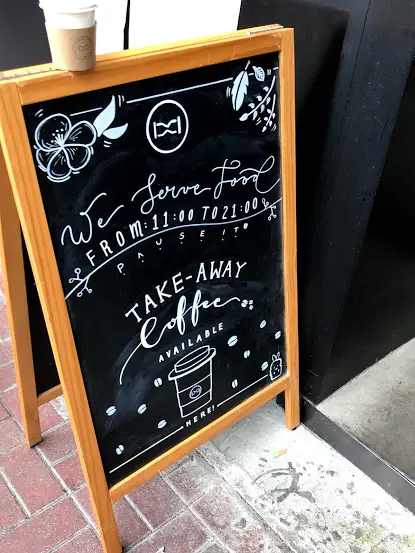 We Serve Food
FROM:11:00 TO 21:00
PAUSE IT
TAKE-AWAY
Coffee
AVAILABLE
HERE!